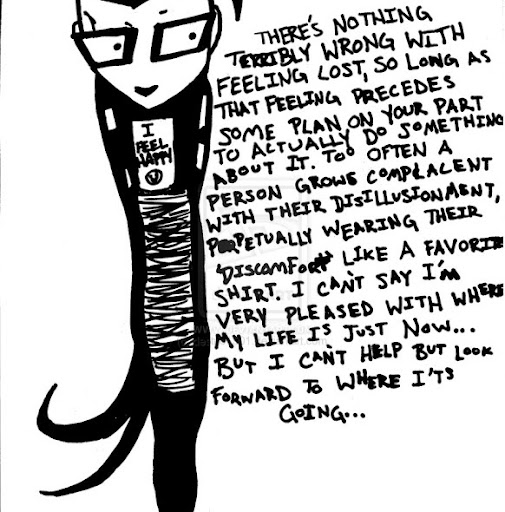 THERE'S NOTHING
TERRIBLY WRONG WITH
FEELING LOST, SO LONG AS
THAT FEELING PRECEDES
SOME PLAN ON YOUR PART
TO ACTUALLY DO SOMETHING
ABOUT IT. TOO OFTEN A
PERSON GROWS COMPLACENT
WITH THEIR DISILLUSIONMENT,
PERPETUALLY WEARING THEIR
"DISCOMFORT" LIKE A FAVORITE
SHIRT. I CAN'T SAY I'M
VERY PLEASED WITH WHERE
MY LIFE IS JUST NOW...
BUT I CAN'T HELP BUT LOOK
FORWARD TO WHERE IT'S
GOING...
I
FEEL
HAPPY